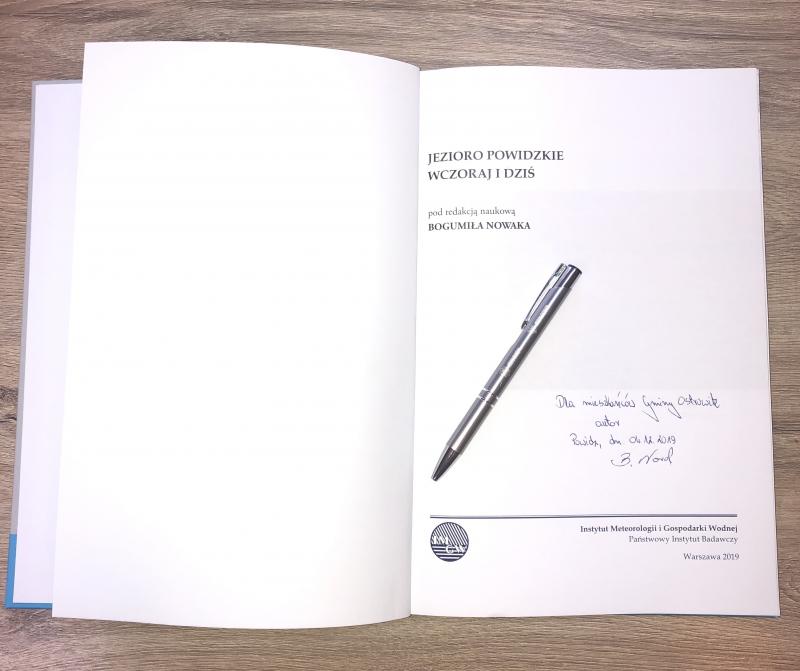 JEZIORO POWIDZKIE
WCZORAJ I DZIŚ
pod redakcją naukową
BOGUMIŁA NOWAKA
Dla mieszkańców Gminy Ostrowite
autor
Powidz, dn. 04.12.2019
B. Nowak
IMGW
Instytut Meteorologii i Gospodarki Wodnej
Państwowy Instytut Badawczy
Warszawa 2019